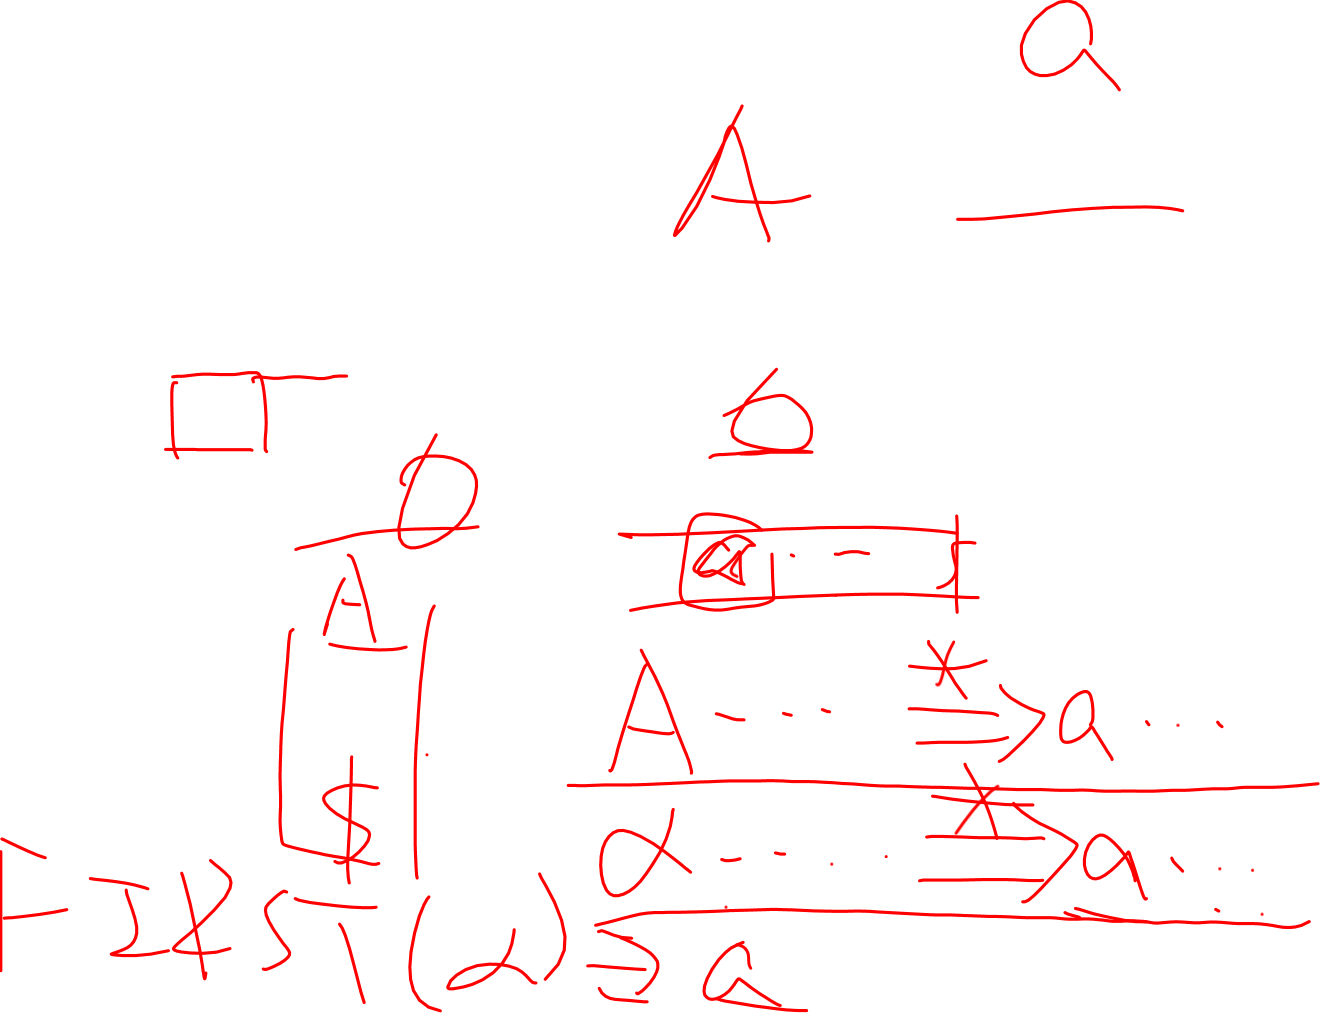 a
A
b
a · - ]
A
A - - - ⇒* a · · ·
$
α - - · · ⇒* a · · ·
FIRST(α) ∋ a